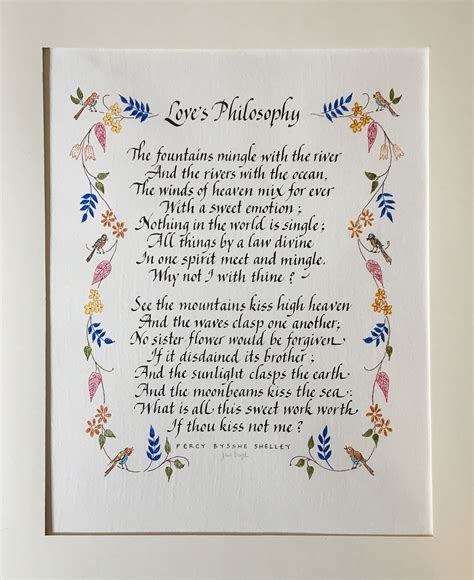 Love's Philosophy
The fountains mingle with the river
And the rivers with the ocean,
The winds of heaven mix for ever
With a sweet emotion;
Nothing in the world is single;
All things by a law divine
In one spirit meet and mingle.
Why not I with thine?
See the mountains kiss high heaven
And the waves clasp one another;
No sister flower would be forgiven
If it disdained its brother;
And the sunlight clasps the earth
And the moonbeams kiss the sea:
What is all this sweet work worth
If thou kiss not me?
PERCY BYSSHE SHELLEY